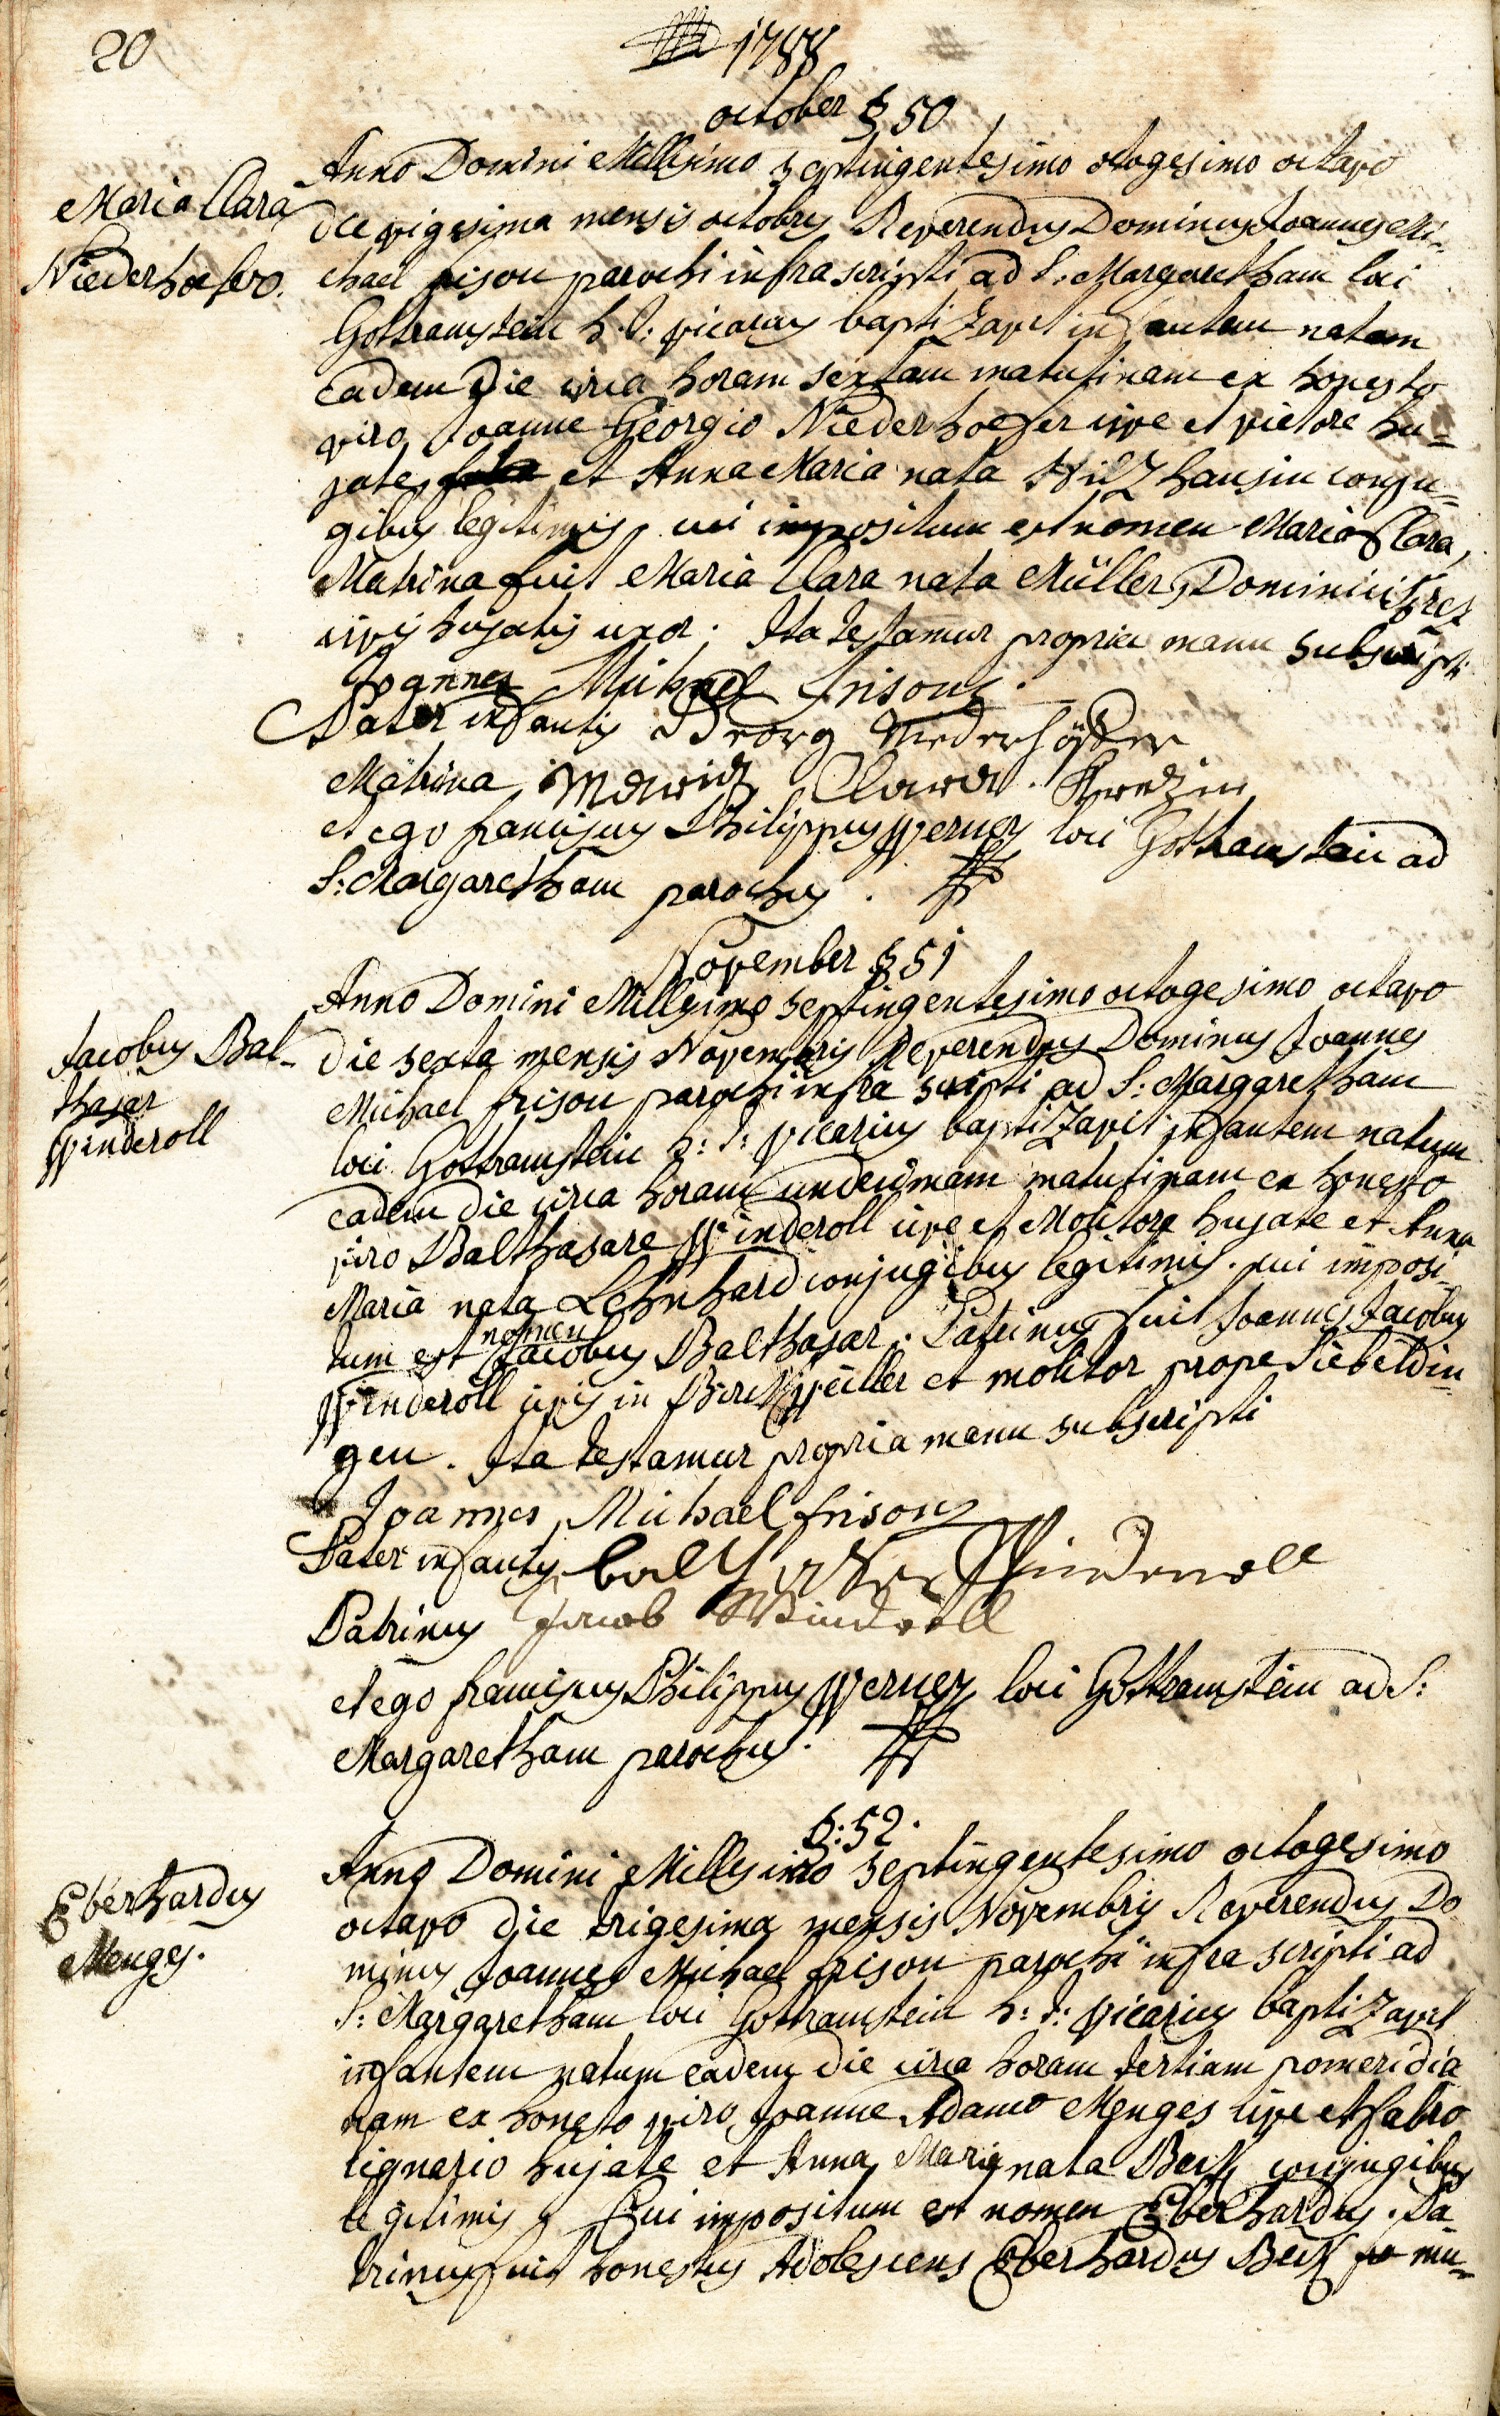 20
1788
october § 50
Maria Clara
Niederhoefer.
Anno Domini Millesimo septingentesimo octogesimo octavo
die vigesima mensis octobris Reverendus Dominus Joannes Mi-
chael frison parochi infra scripti ad S: Margaretham loci
Gottramstein h. t: vicarius baptizavit infantem natam
eadem die circa horam sextam matutinam ex honesto
viro Joanne Georgio Niederhoefer cive et vietore hu-
jate et Anna Maria nata conju-
gibus legitimis, cui impositum est nomen Maria Clara,
Matrina fuit Maria Clara nata Müller, Dominici
civis hujatis uxor. Ita testamur propria manu subscripti
Joannes Michael frison
Pater infantis Georg Niederhöffer
Matrina Maria Clara
et ego franciscus Philippus Werner loci Gottramstein ad
S: Margaretham parochus.
November § 51
Jacobus Bal-
thasar
Winderoll
Anno Domini Millesimo septingentesimo octogesimo octavo
die sexta mensis Novembris Reverendus Dominus Joannes
Michael frison parochi infra scripti ad S: Margaretham
loci Gottramstein h: t: vicarius baptizavit infantem natum
eadem die circa horam undecimam matutinam ex honesto
viro Balthasare Winderoll cive et Molitore hujate et Anna
Maria nata Lehnhard conjugibus legitimis. cui imposi-
tum est nomen Jacobus Balthasar. Patrinus fuit Joannes Jacobus
Winderoll civis in Birckweiller et molitor prope Siebeldin-
gen. Ita testamur propria manu subscripti
Joannes Michael frison
Pater infantis Winderoll
Patrinus Jacob Winderoll
et ego franciscus Philippus Werner loci Gottramstein ad S:
Margaretham parochus.
§: 52.
Eberhardus
Menges.
Anno Domini Millesimo septingentesimo octogesimo
octavo die trigesima mensis Novembris Reverendus Do
minus Joannes Michael frison parochi infra scripti ad
S: Margaretham loci Gottramstein h: t: vicarius baptizavit
infantem natum eadem die circa horam tertiam pomeridia
nam ex honesto viro Joanne Adamo Menges cive et fabro
lignario hujate et Anna Maria nata Beck conjugibus
legitimis, Cui impositum est nomen Eberhardus. Pa-
trinus fuit honestus Adolescens Eberhardus Beck